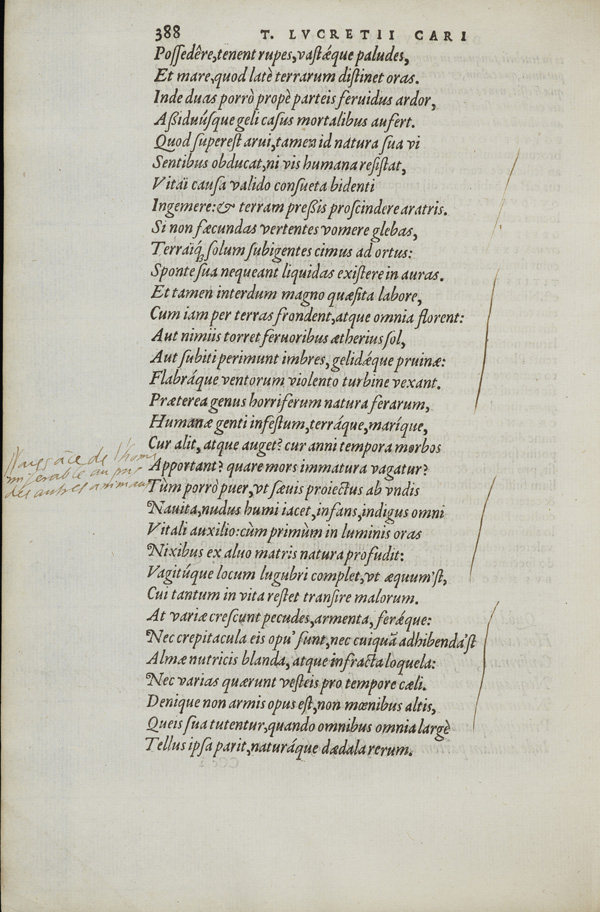 388 T. LVCRETII CARI
Poſſedêre, tenent rupes, vaſtǽque paludes,
Et mare, quod latè terrarum diſtinet oras.
Inde duas porrò propè parteis feruidus ardor,
Aßiduúſque geli caſus mortalibus aufert.
Quod ſupereſt arui, tamen id natura ſua vi
Sentibus obducat, ni vis humana reſiſtat,
Vitaï cauſa valido conſueta bidenti
Ingemere: & terram preßis proſcindere aratris.
Si non fæcundas vertentes vomere glebas,
Terraiq́; ſolum ſubigentes cimus ad ortus:
Sponte ſua nequeant liquidas exiſtere in auras.
Et tamen interdum magno quæſita labore,
Cum iam per terras frondent, atque omnia florent:
Aut nimiis torret feruoribus ætherius ſol,
Aut ſubiti perimunt imbres, gelidǽque pruinæ:
Flabráque ventorum violento turbine vexant.
Præterea genus horriferum natura ferarum,
Humanæ genti infeſtum, terráque, maríque,
Cur alit, atque auget? cur anni tempora morbos
Apportant? quare mors immatura vagatur?
Tùm porrò puer, vt ſæuis proiectus ab vndis
Nauita, nudus humi iacet, infans, indigus omni
Vitali auxilio: cùm primùm in luminis oras
Nixibus ex aluo matris natura profudit:
Vagitúque locum lugubri complet, vt æquum'ſt,
Cui tantum in vita reſtet tranſire malorum.
At variæ creſcunt pecudes, armenta, ferǽque:
Nec crepitacula eis opu' ſunt, nec cuiquã adhibenda'ſt
Almæ nutricis blanda, atque infracta loquela:
Nec varias quærunt veſteis pro tempore cæli.
Denique non armis opus eſt, non mœnibus altis,
Queis ſua tutentur, quando omnibus omnia largè
Tellus ipſa parit, naturáque dædala rerum.
de l'home
miserable au pris
des autres animaus